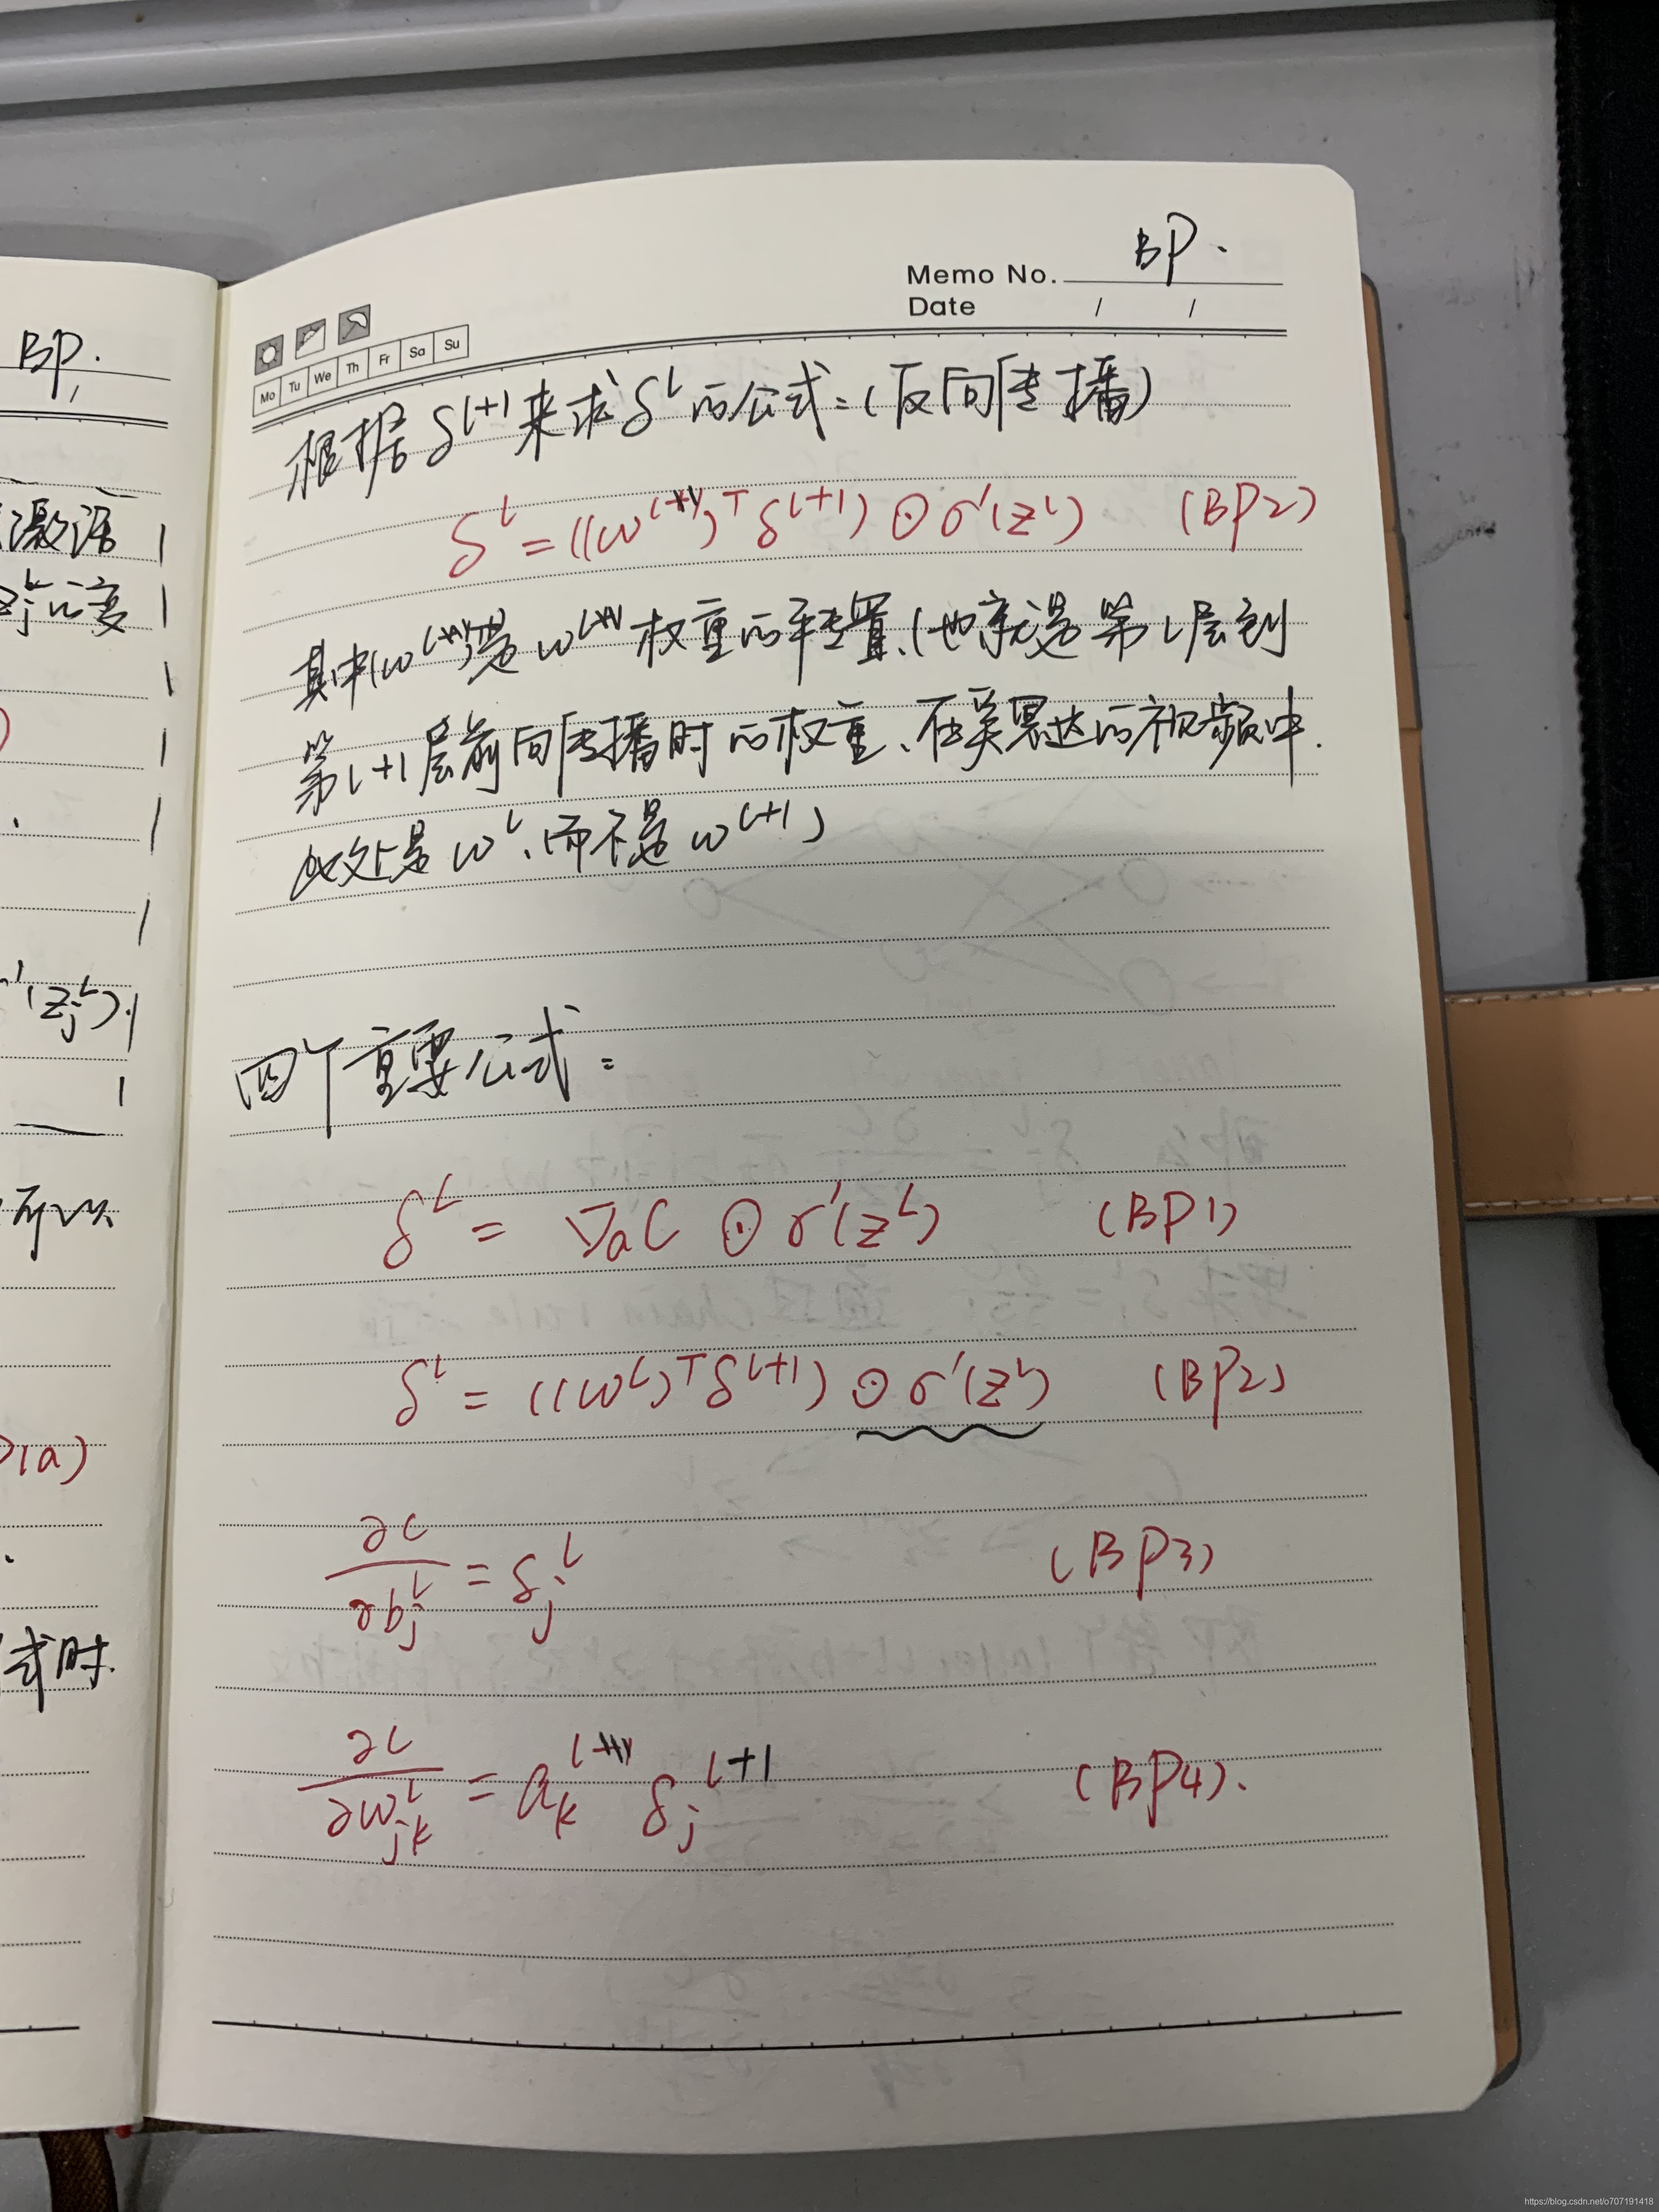 BP.
激活
z_j^L 的变
'(z_j^L).
所以
(a)
式时.
BP.
Memo No.
Date / /
Mo Tu We Th Fr Sa Su
根据 δ^{l+1} 来求 δ^l 的公式:(反向传播)
δ^l = ((w^l)^T δ^{l+1}) ⊙ σ'(z^l) (BP2)
其中(w^l)^T是 w^l 权重的转置.(也就是第 l 层到
第 l+1 层前向传播时的权重、在吴恩达的视频中.
此处是 w^l、而不是 w^{l+1})
四个重要公式:
δ^L = ∇_a C ⊙ σ'(z^L) (BP1)
δ^l = ((w^l)^T δ^{l+1}) ⊙ σ'(z^l) (BP2)
∂C/∂b_j^l = δ_j^l (BP3)
∂C/∂w_{jk}^l = a_k^l δ_j^{l+1} (BP4).
https://blog.csdn.net/o707191418